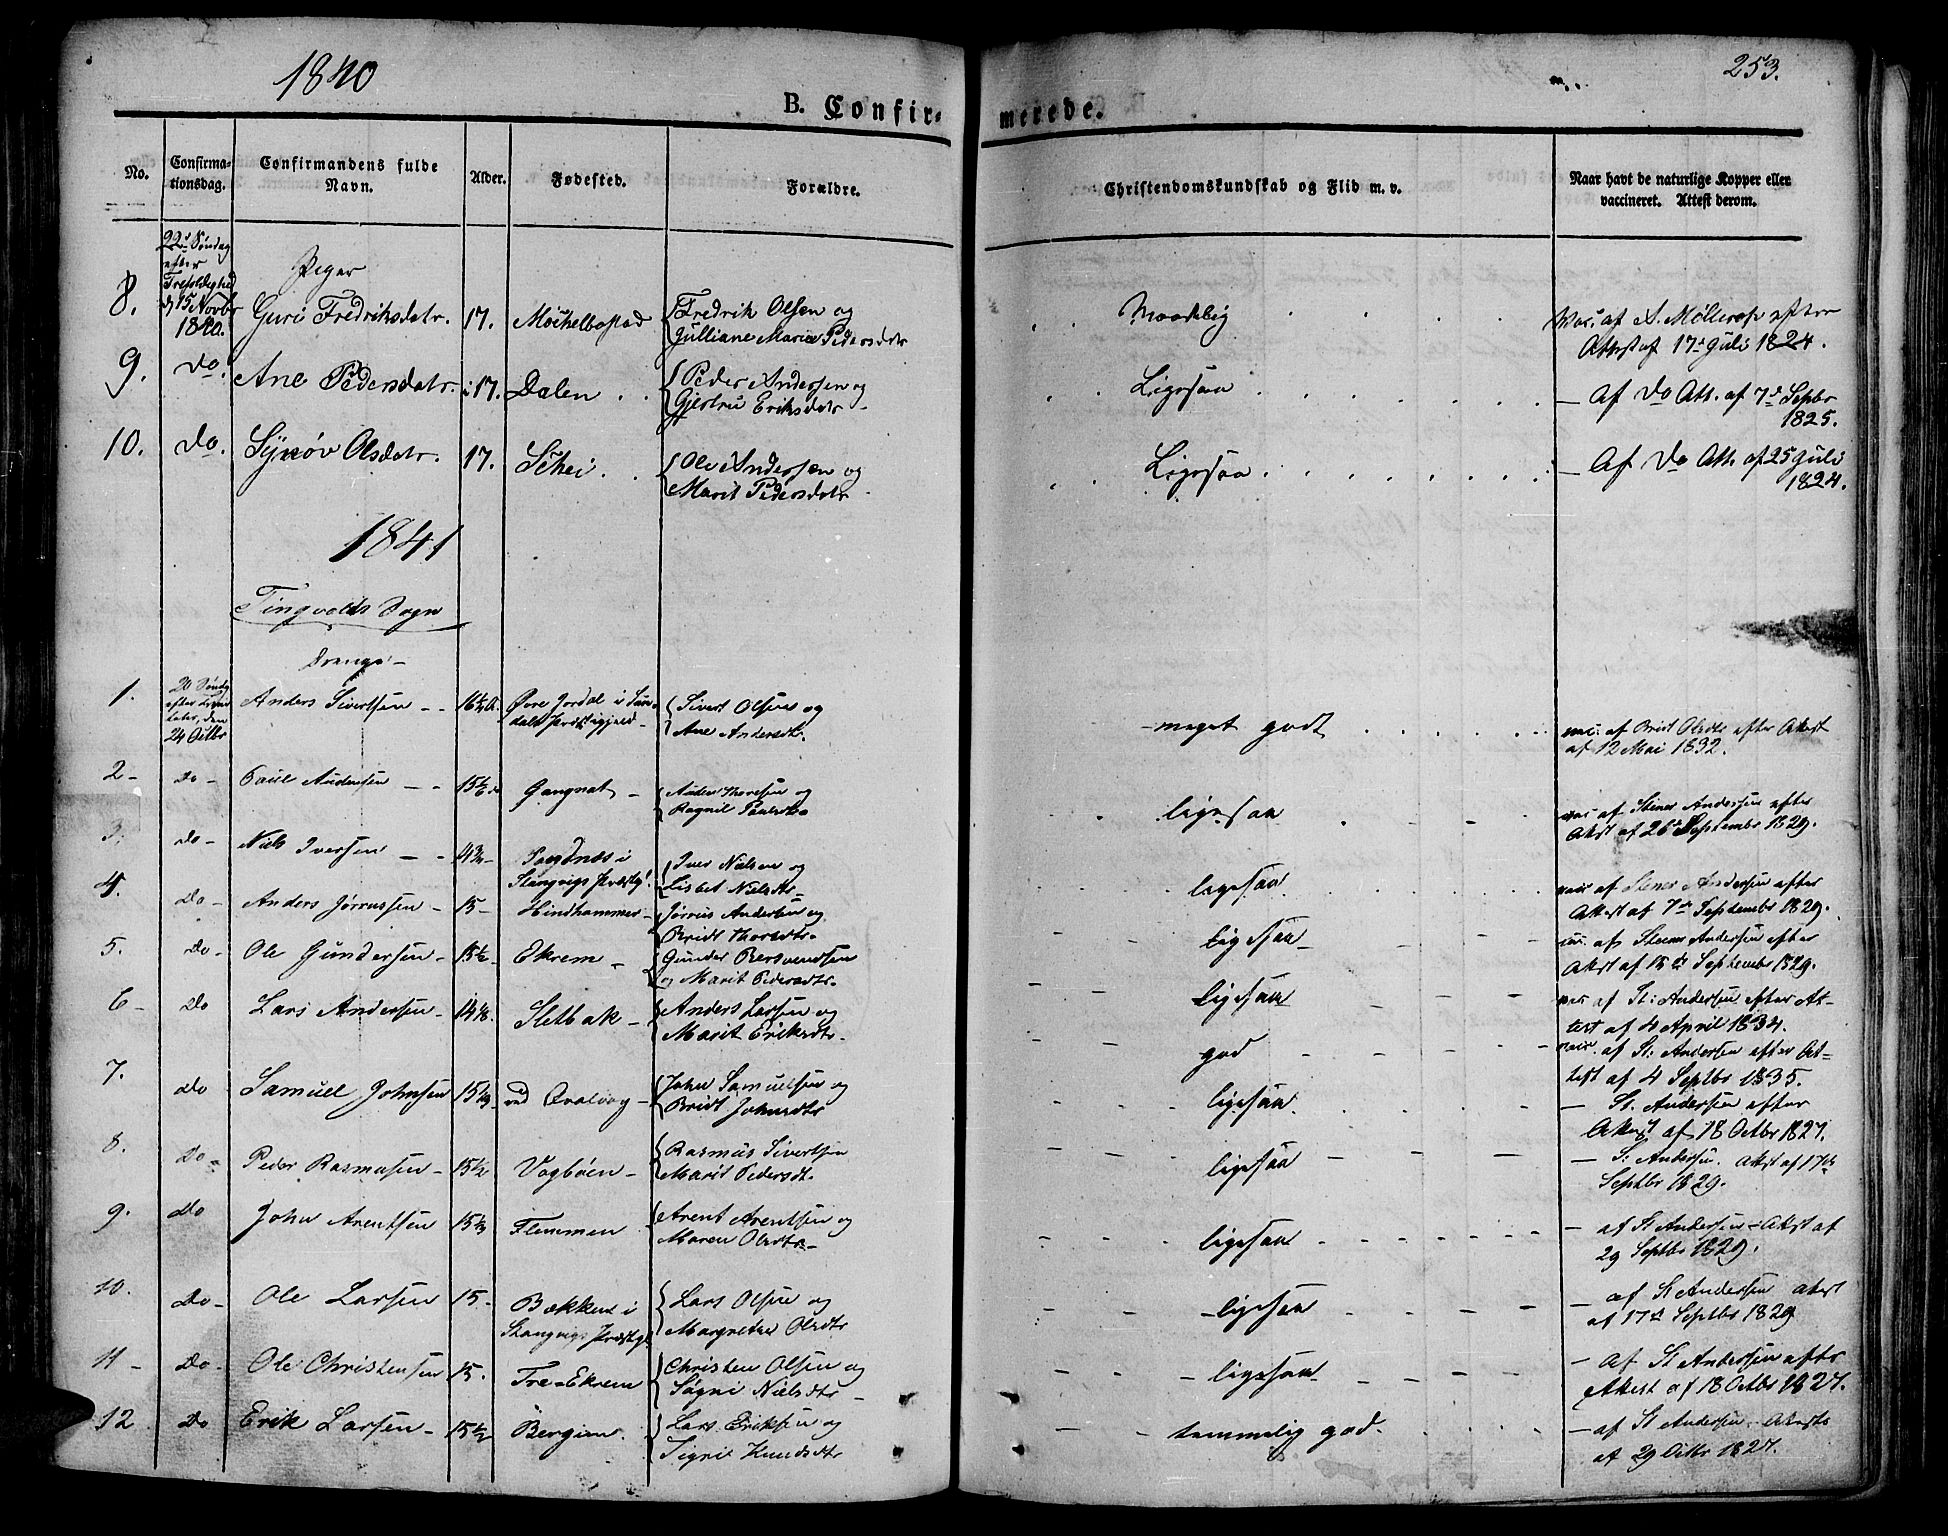 1840
253.
B. Confir-
merede.
No.
Confirma-
tionsdag.
Confirmandens fulde
Navn.
Alder.
Fødested.
Forældre.
Christendomskundskab og Flid m. v.
Naar havt de naturlige Kopper eller
vaccineret. Attest derom.
22d Søndag
efter
Trefoldighed
d 15 Novbr
1840.
Piger
8. Guri Fredriksdatr. 17. Meikelbostad Fredrik Olsen og
Julliane Marie Pedersdatr
Maadelig
Vac. af A. Møllerop efter
Attest af 17d Juli 1824.
9. do. Ane Pedersdatr. i 17. Dalen . . Peder Andersen og
Gjertru Eriksdatr -
Ligesaa
- Af do Att. af 7d Septbr
1825.
10. do. Synøv Olsdatr. 17. Schei . . Ole Andersen og
Marit Pedersdatr
Ligesaa
- Af do Att. af 25 Juli
1824.
1841
Tingvolds Sogn
Drenge -
1. 20 Søndg
efter Trini
tatis, den
24 Octbr
Anders Sivertsen - - Øvre Jordal i Sun-
dals Præstegjeld - Sivert Olsen og
Ane Andersdtr.
meget godt
vac. af Brit Olsdtr efter Attest
af 12 Mai 1832.
2 - do - Paul Andersen - - Gangnat - Anders Thoresen og
Ragnil Paulsdtr
ligesaa
vac af Stener Andersen efter
Attest af 26d September 1829.
3. do - Niels Iversen - - Sandnes i
Stangvigs Præstg. Iver Nielsen og
Lisbet Nielsdtr -
ligesaa
vac af Stener Andersen efter
Attest af 7de September 1829.
4. do - Anders Jørrussen - 15 - Hindhammer - Jørrus Andersen og
Bridt Thorsdtr.
ligesaa -
vac. af Steener Andersen efter
Attest af 15de September 1829.
5. do - Ole Gundersen - 15½ - Ekrem - Gunder Bersvendsen
og Marit Pedersdtr.
ligesaa
vac af St: Andersen efter At-
test af 4 April 1834.
6 - do Lars Andersen - Sletbak - Anders Larsen og
Marit Eriksdtr.
god
vac. af St: Andersen efter At-
test af 4 Septbr 1835.
7. do Samuel Johnsen ved Qvalvog - John Samuelsen og
Bridt Johnsdtr
ligesaa.
- St. Andersen efter
Attest af 18 Octbr 1827.
8. do - Peder Rasmusen - 15½ Vogbøen - Rasmus Sivertsen
Marit Pedersdt.
ligesaa
- S: Andersen. Attest af 17de
Septbr 1829.
9. do John Arentsen Flemmen Arent Arentsen og
Maren Olsdtr -
ligesaa
- af St Andersen - Attest af
29 Septbr 1829.
10. do - Ole Larsen 15 - Bækken i
Stangvigs Præstg. Lars Olsen og
Margrethe Olsdtr
- ligesaa
- af St Andersen Attest
af 17de Septbr 1829
11 - do - Ole Christensen 15. Tre-Ekrem Christen Olsen og
Søgni Nielsdtr -
ligesaa
- af St Andersen efter
Attest af 18 Octbr 1827.
12 do Erik Larsen - 15½ Bergiem. Lars Eriksen og
Sigrit Knudsdtr
temmelig god.
- af St Andersen - Attest
af 29 Octbr 1827.